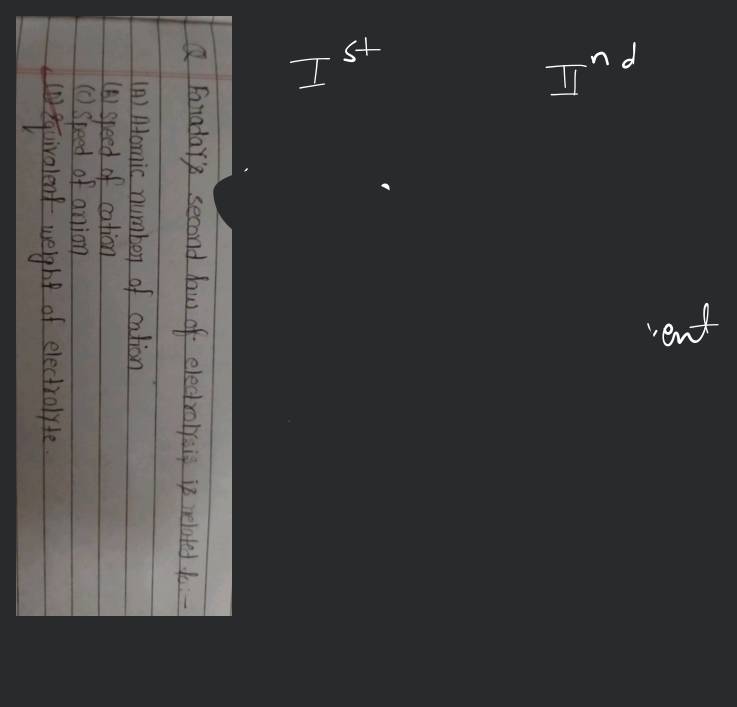 Q Faraday's second law of electrolysis is related to:-
(A) Atomic number of cation
(B) speed of cation
(C) speed of anion
(D) equivalent weight of electrolyte.
I st
II nd
ent